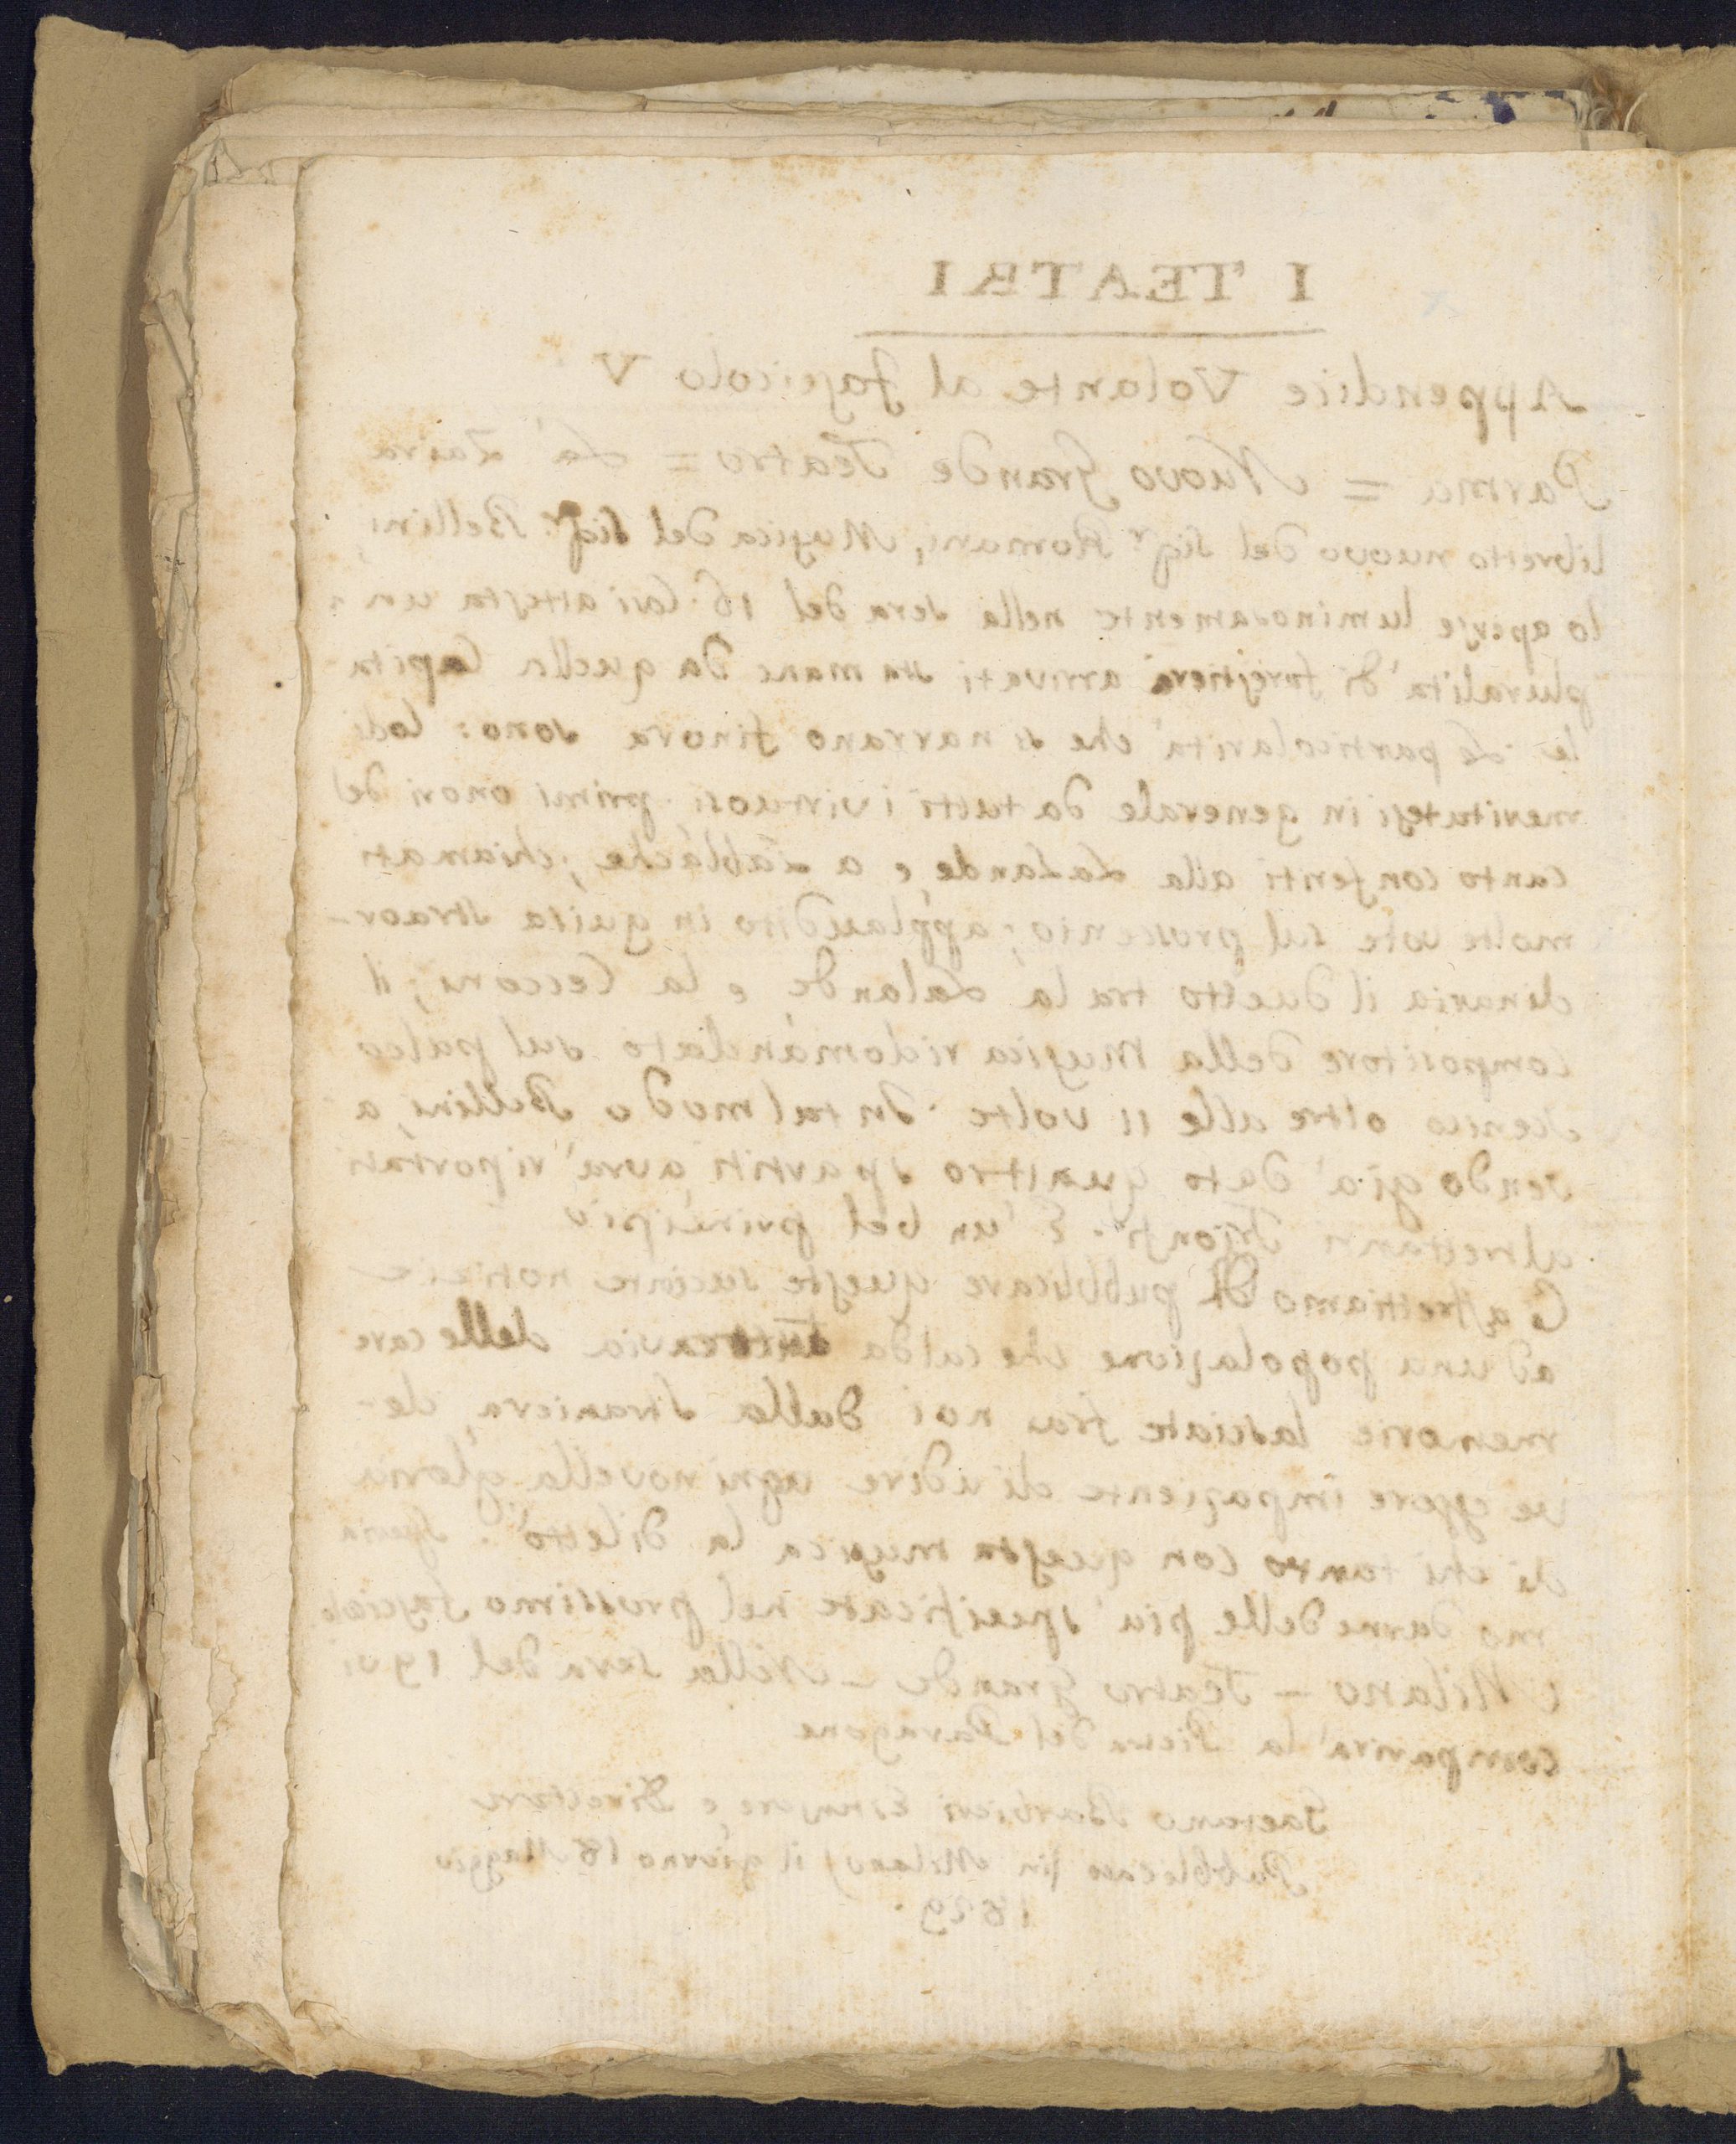 I TEATRI
Appendice Volante al Fascicolo V
Parma = Nuovo Grande Teatro = La Zaira
libretto nuovo del Sigr. Romani, Musica del Sigr. Bellini,
lo aperse luminosamente nella sera del 16. Così attesta un
pluralità di forestieri arrivati sta mane da quella Capita
le. Le particolarità che si narrano finora sono: lodi
meritatesi in generale da tutti i virtuosi. primi onori del
canto consenti alla LaLande, e a Lablache, chiamati
molte volte sul proscenio; applaudito in guisa straor-
dinaria il duetto tra la Lalande e la Cecconi; il
compositore della Musica ridomandato sul palco
scenico oltre alle 11 volte. In tal modo Bellini, a
vendo già dato quattro spartiti avrà riportati
altrettanti Trionfi. È un bel principio
Ci affrettiamo di pubblicare queste succinte notizie
ad una popolazione che calda tuttavia delle care
memorie lasciate fra noi dalla Straniera, de-
ve essere impaziente di udire ogni novella gloria
di chi tanto con questa musica la dilettò.
mo darne delle più specificate nel prossimo fascicolo
Milano – Teatro Grande – Nella sera del 19
comparirà la Pietra del Paragone
Gaetano Barbieri Estensore e Direttore
Pubblicato (in Milano) il giorno 18 Maggio
1829.